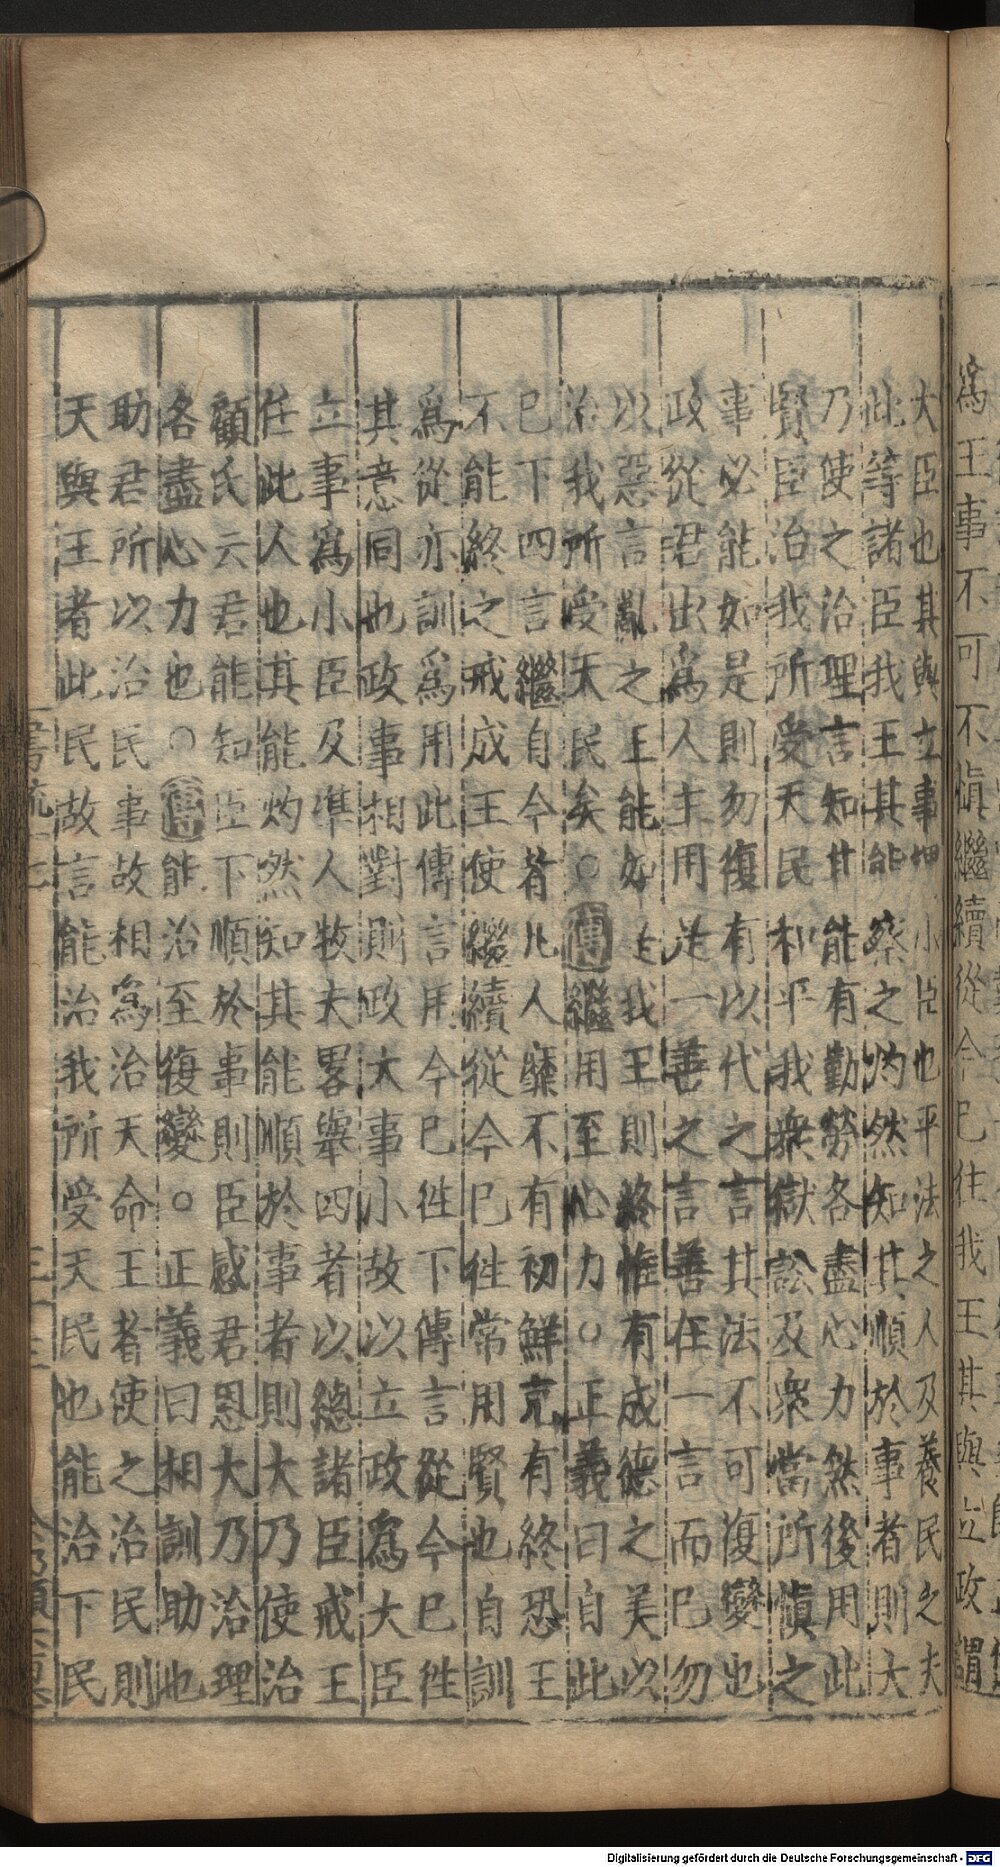 爲王事不可不愼繼續從今已往我王其與立政謂
大臣也其與立事謂小臣也平法之人及養民之夫
此等諸臣我王其能 察之灼然知其順於事者則大
乃使之治理言知其能有勤勞各盡心力然後用此
賢臣治我所受天民和平我衆獄訟及衆當所愼之
事必能如是則勿復有以代之言其法不可復變也
政從君出爲人主用 是一善之言善在一言而已勿
以惡言亂之 王能如是我王則終惟有成德之美以
治我所受天民矣○傳繼用至心力○正義曰自此
已下四言繼自今者凡人靡不有初鮮克有終恐王
不能終之戒成王使繼續從今已徃常用賢也自訓
爲從亦訓爲用此傳言用今已徃下傳言從今已徃
其意同也政事相對則政大事小故以立政爲大臣
立事爲小臣及凖人牧夫畧舉四者以總諸臣戒王
任此人也其能灼然知其能順於事者則大乃使治
顧氏云君能知臣下順於事則臣感君恩大乃治理
各盡心力也○傳能治至復變○正義曰相訓助也
助君所以治民事故相爲治天命王者使之治民則
天與王者此民故言能治我所受天民也能治下民